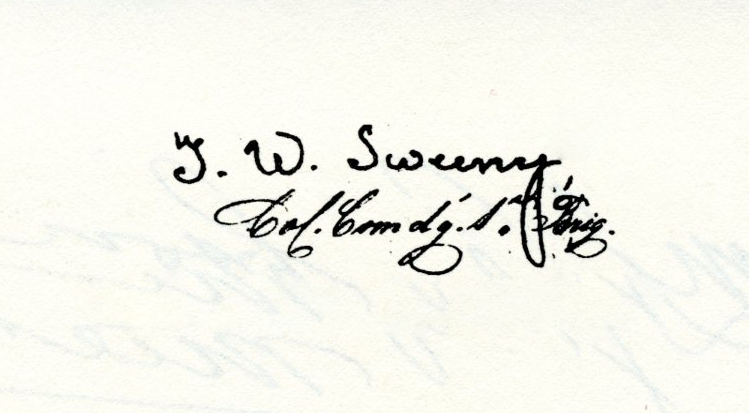 T. W. Sweeny
Col. Comdg. 1st Brig.